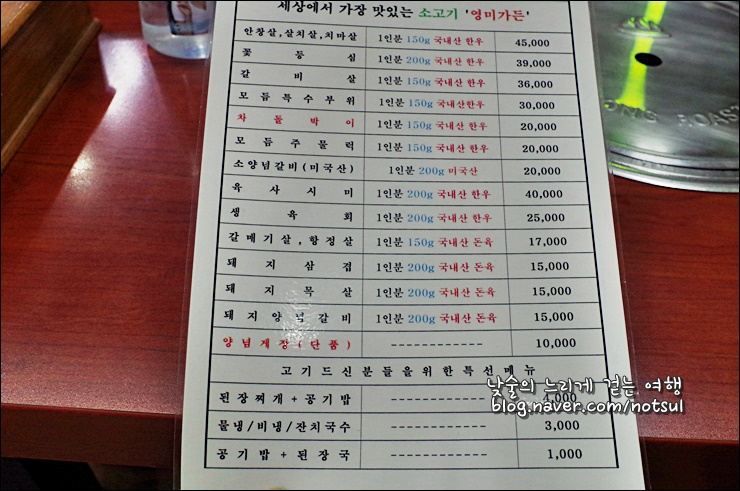 세상에서 가장 맛있는 소고기 '영미가든'
안창살,살치살,치마살 1인분 150g 국내산 한우 45,000
꽃 등 심 1인분 200g 국내산 한우 39,000
갈 비 살 1인분 150g 국내산 한우 36,000
모듬특수부위 1인분 150g 국내산한우 30,000
차 돌 박 이 1인분 150g 국내산 한우 20,000
모 듬 주 물 럭 1인분 150g 국내산 한우 20,000
소양념갈비(미국산) 1인분 200g 미국산 20,000
육 사 시 미 1인분 200g 국내산 한우 40,000
생 육 회 1인분 200g 국내산 한우 25,000
갈매기살,항정살 1인분 150g 국내산 돈육 17,000
돼 지 삼 겹 1인분 200g 국내산 돈육 15,000
돼 지 목 살 1인분 200g 국내산 돈육 15,000
돼지양념갈비 1인분 200g 국내산 돈육 15,000
양념게장(단품) ------------ 10,000
고기드신분들을위한특선메뉴
된장찌개+공기밥 ------------ 4,000
물냉/비냉/잔치국수 ------------ 3,000
공기밥+된장국 ------------ 1,000
낮술의 느리게 걷는 여행
blog.naver.com/notsul